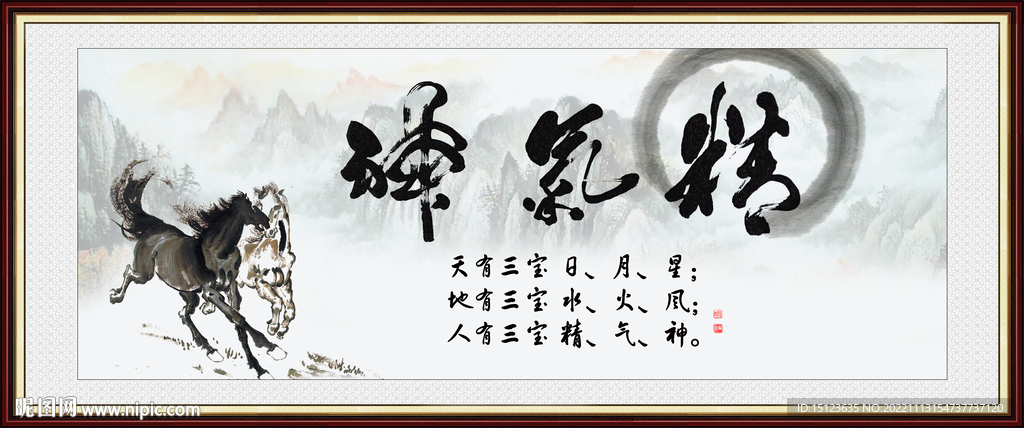 神氣精
天有三宝日、月、星；
地有三宝水、火、风；
人有三宝精、气、神。
昵图网 www.nipic.com
ID:15123635 NO:20221113154737737120